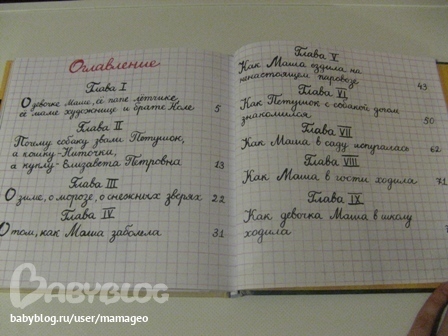 Оглавление
Глава I
О девочке Маше, её папе лётчике
её маме художнице и брате Коле 5
Глава II
Почему собаку звали Петушок,
а кошку-Ниточки,
а куклу-Елизавета Петровна 13
Глава III
О зиме, о морозе, о снежных зверях 22
Глава IV
О том, как Маша заболела 31
Глава V
Как Маша ездила на
ненастоящем паровозе 43
Глава VI
Как Петушок с собакой догом
знакомился 50
Глава VII
Как Маша в саду испугалась 62
Глава VIII
Как Маша в гости ходила 71
Глава IX
Как девочка Маша в школу
ходила
BABYBLOG
babyblog.ru/user/mamageo